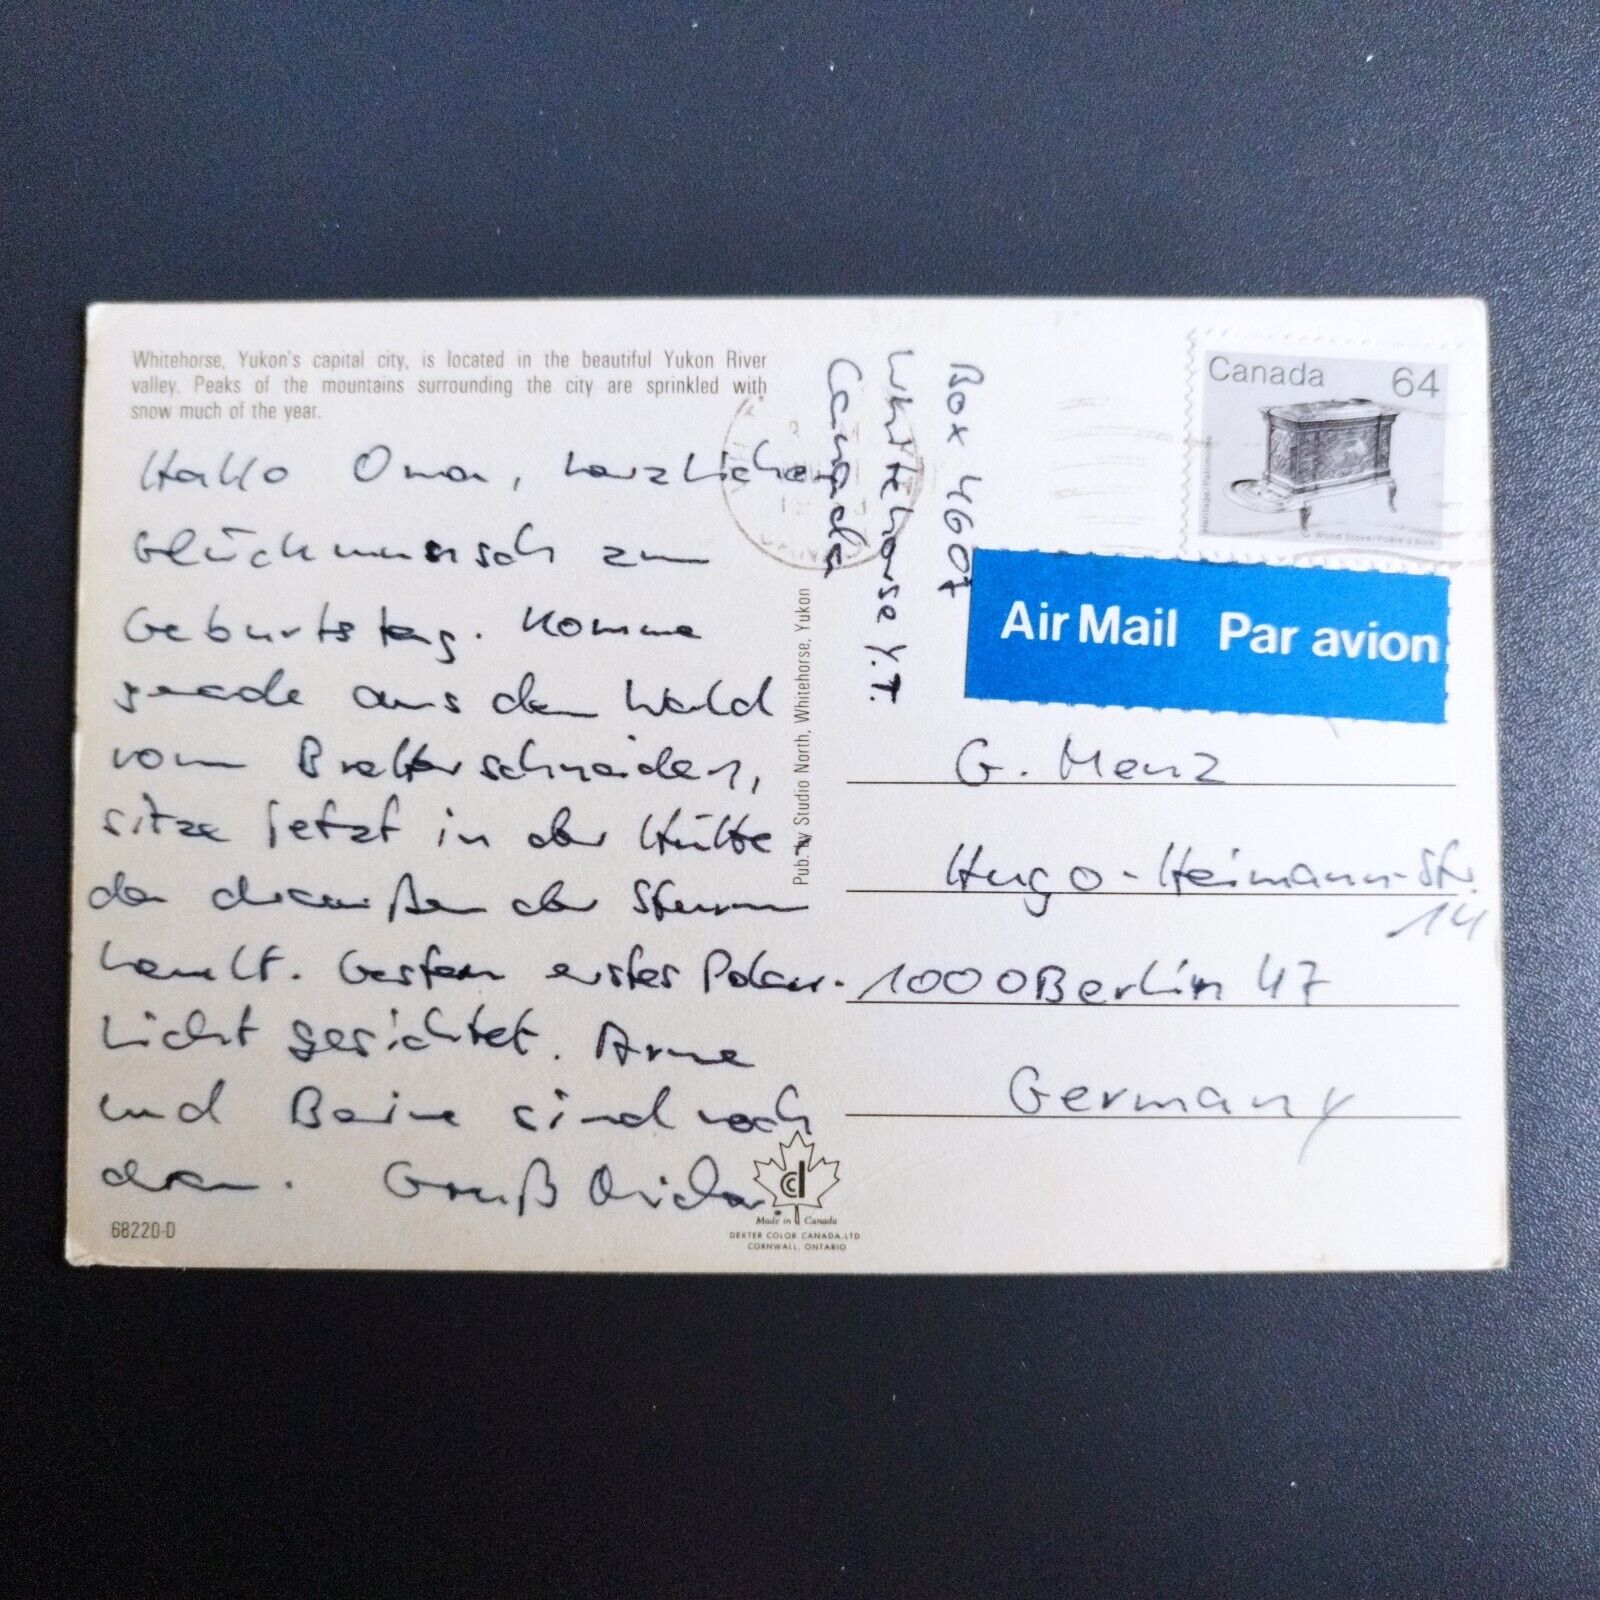 Whitehorse, Yukon's capital city, is located in the beautiful Yukon River
valley. Peaks of the mountains surrounding the city are sprinkled with
snow much of the year.
Hallo Oma, herzlichen
Glückwunsch zum
Geburtstag. Komme
gerade aus dem Wald
vom Bretterschneiden,
sitze jetzt in der Hütte
da draußen der Sturm
heult. Gestern erstes Polar-
licht gesichtet. Arme
und Beine sind noch
dran. Gruß
68220-D
Pub. by Studio North, Whitehorse, Yukon
Made in Canada
DEXTER COLOR CANADA, LTD
CORNWALL, ONTARIO
Box 4607
Whitehorse Y.T.
Canada
Canada 64
Heritage/Patrimoine
Wood Stove/Poêle à bois
Air Mail Par avion
G. Menz
Hugo-Heimann-Str.
14
1000 Berlin 47
Germany